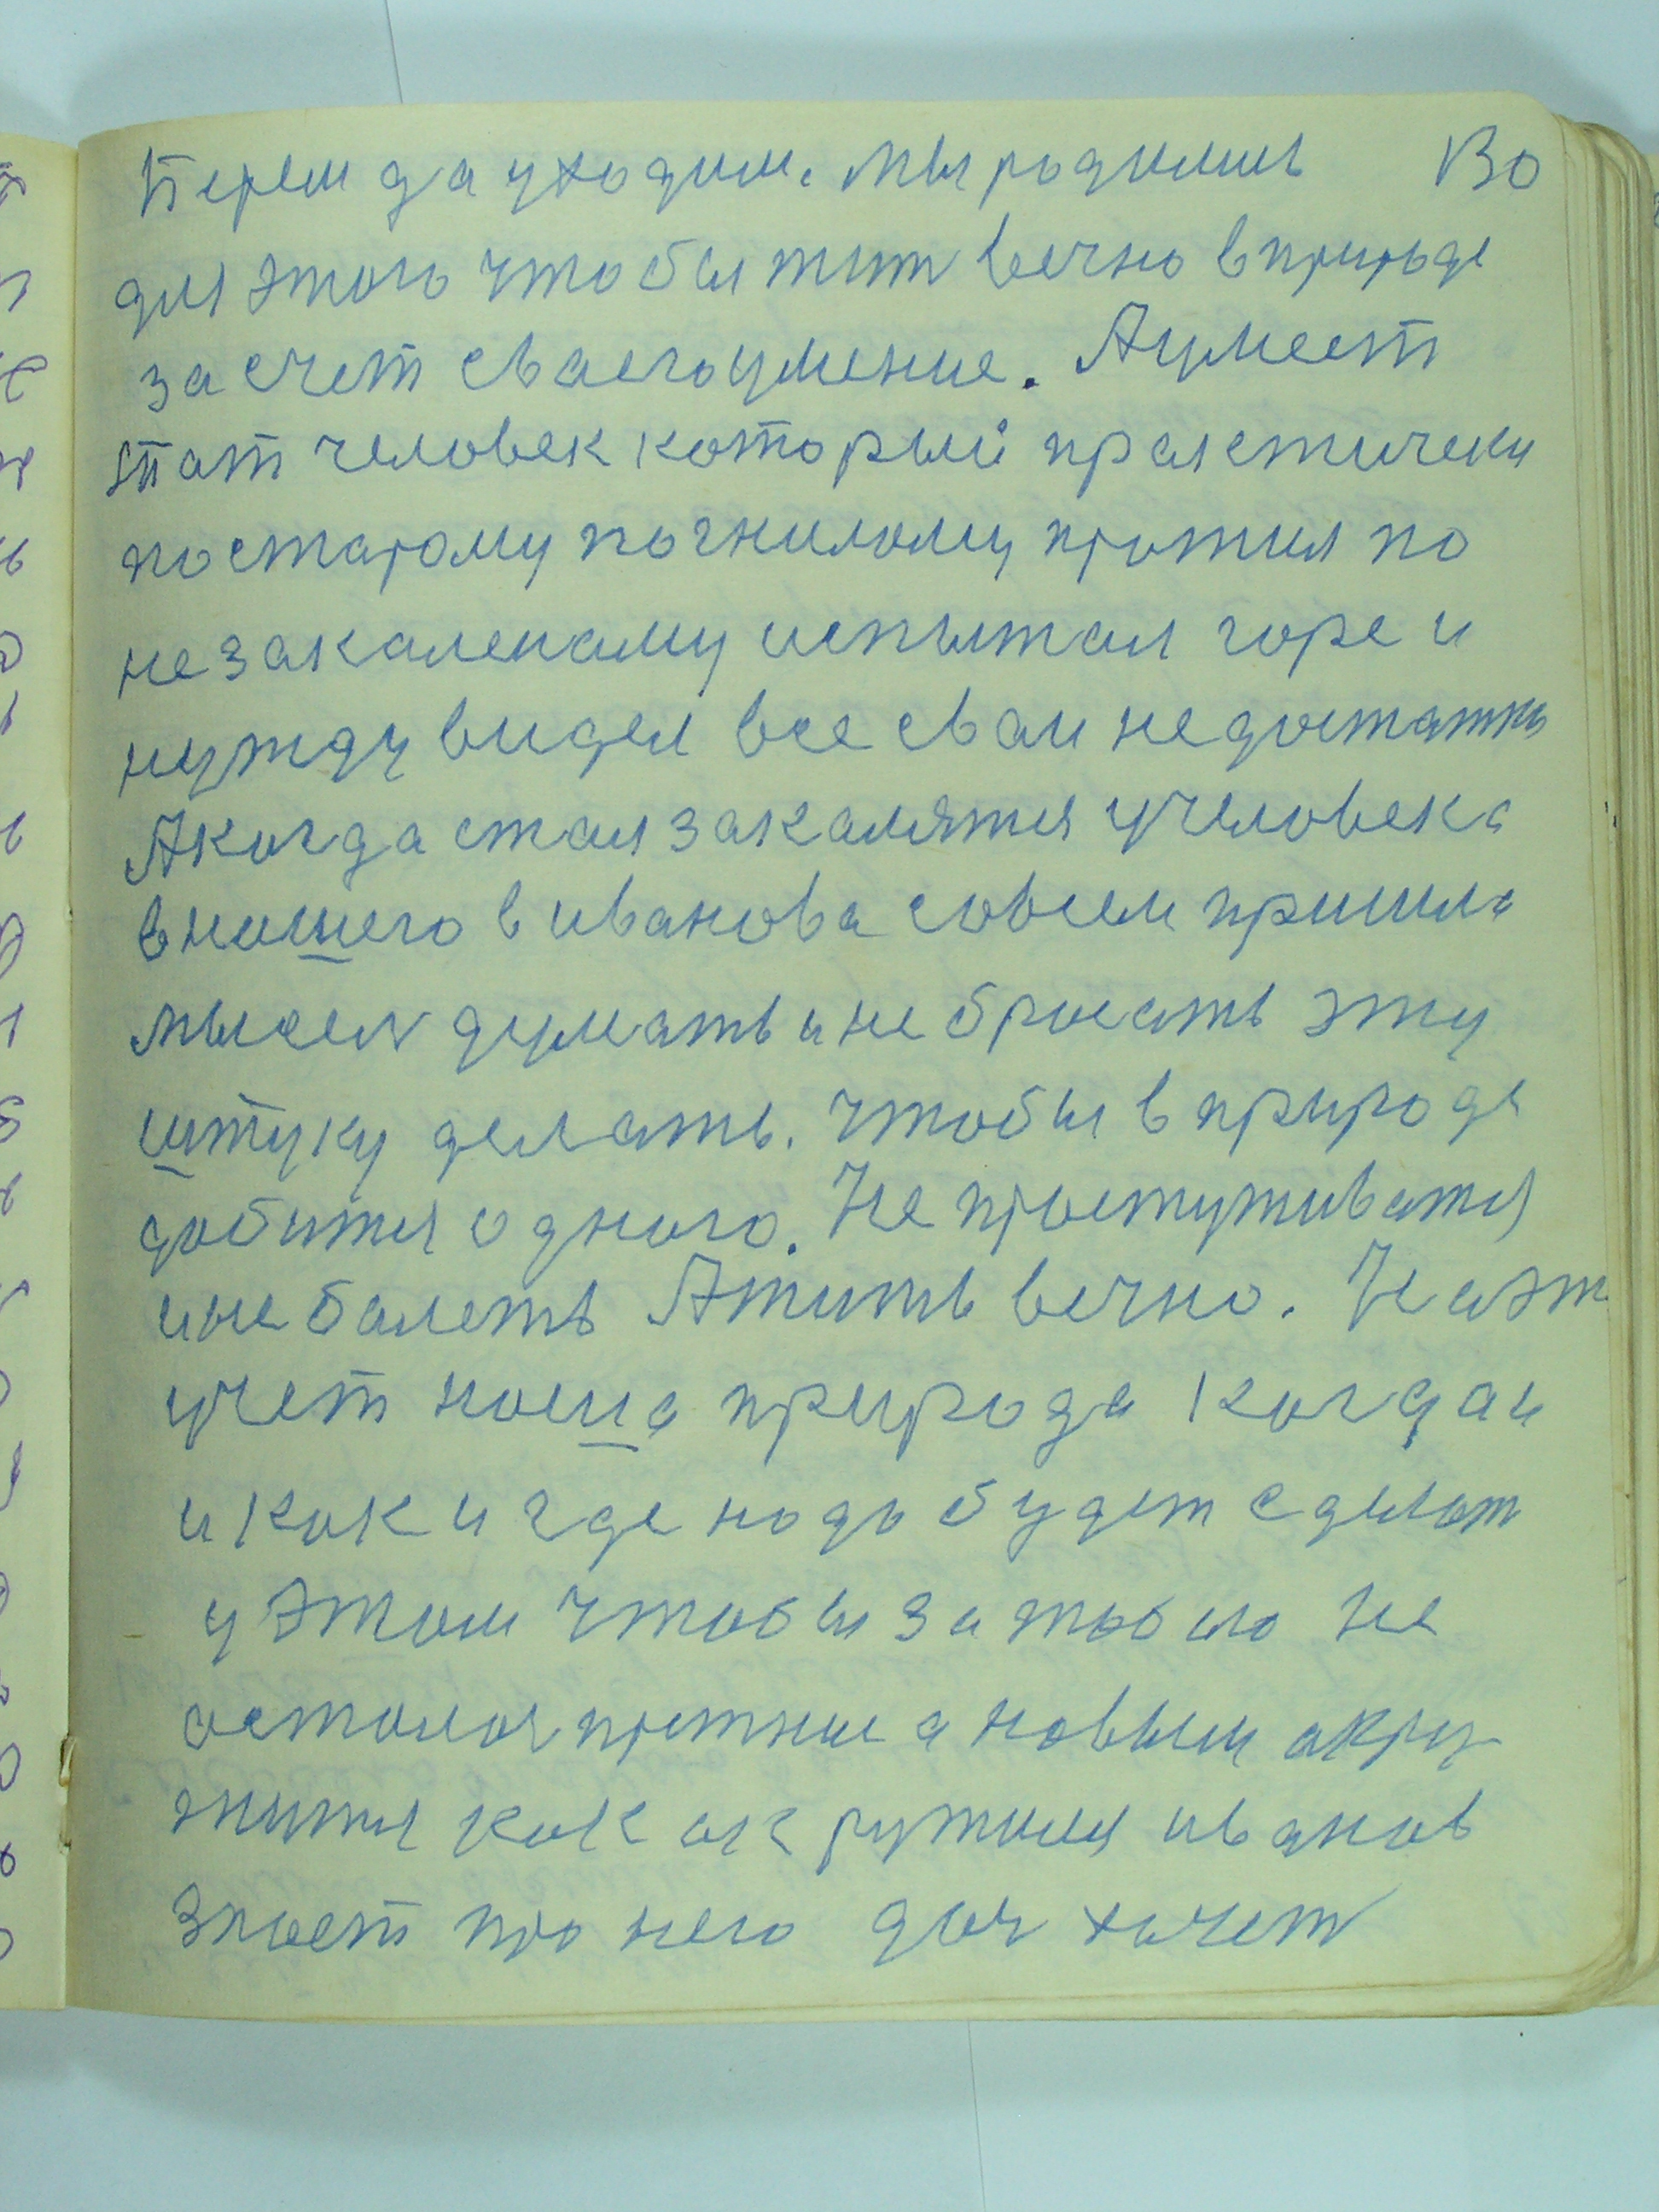 Берем да уходим. Мы родились 130
для этого чтобы жит вечно в природе
за счет сваего умение. А умеет
тот человек который практически
по старому по гнилому прожил по
не закаленаму испытал горе и
нужду видел все сваи недостатки
А когда стал закалятся у человека
в нашего в иванова совсем пришла
мысел думать и не бросать эту
штуку делать. Чтобы в природе
добится одного. Не простуживатся
и не болеть А жить вечно. На эт
учет наша природа когда и
и как и где надо будет сделат
у этом чтобы за тобою не
осталос прежние а новым акру
жится как окружился иванов
знает про него да и хочет